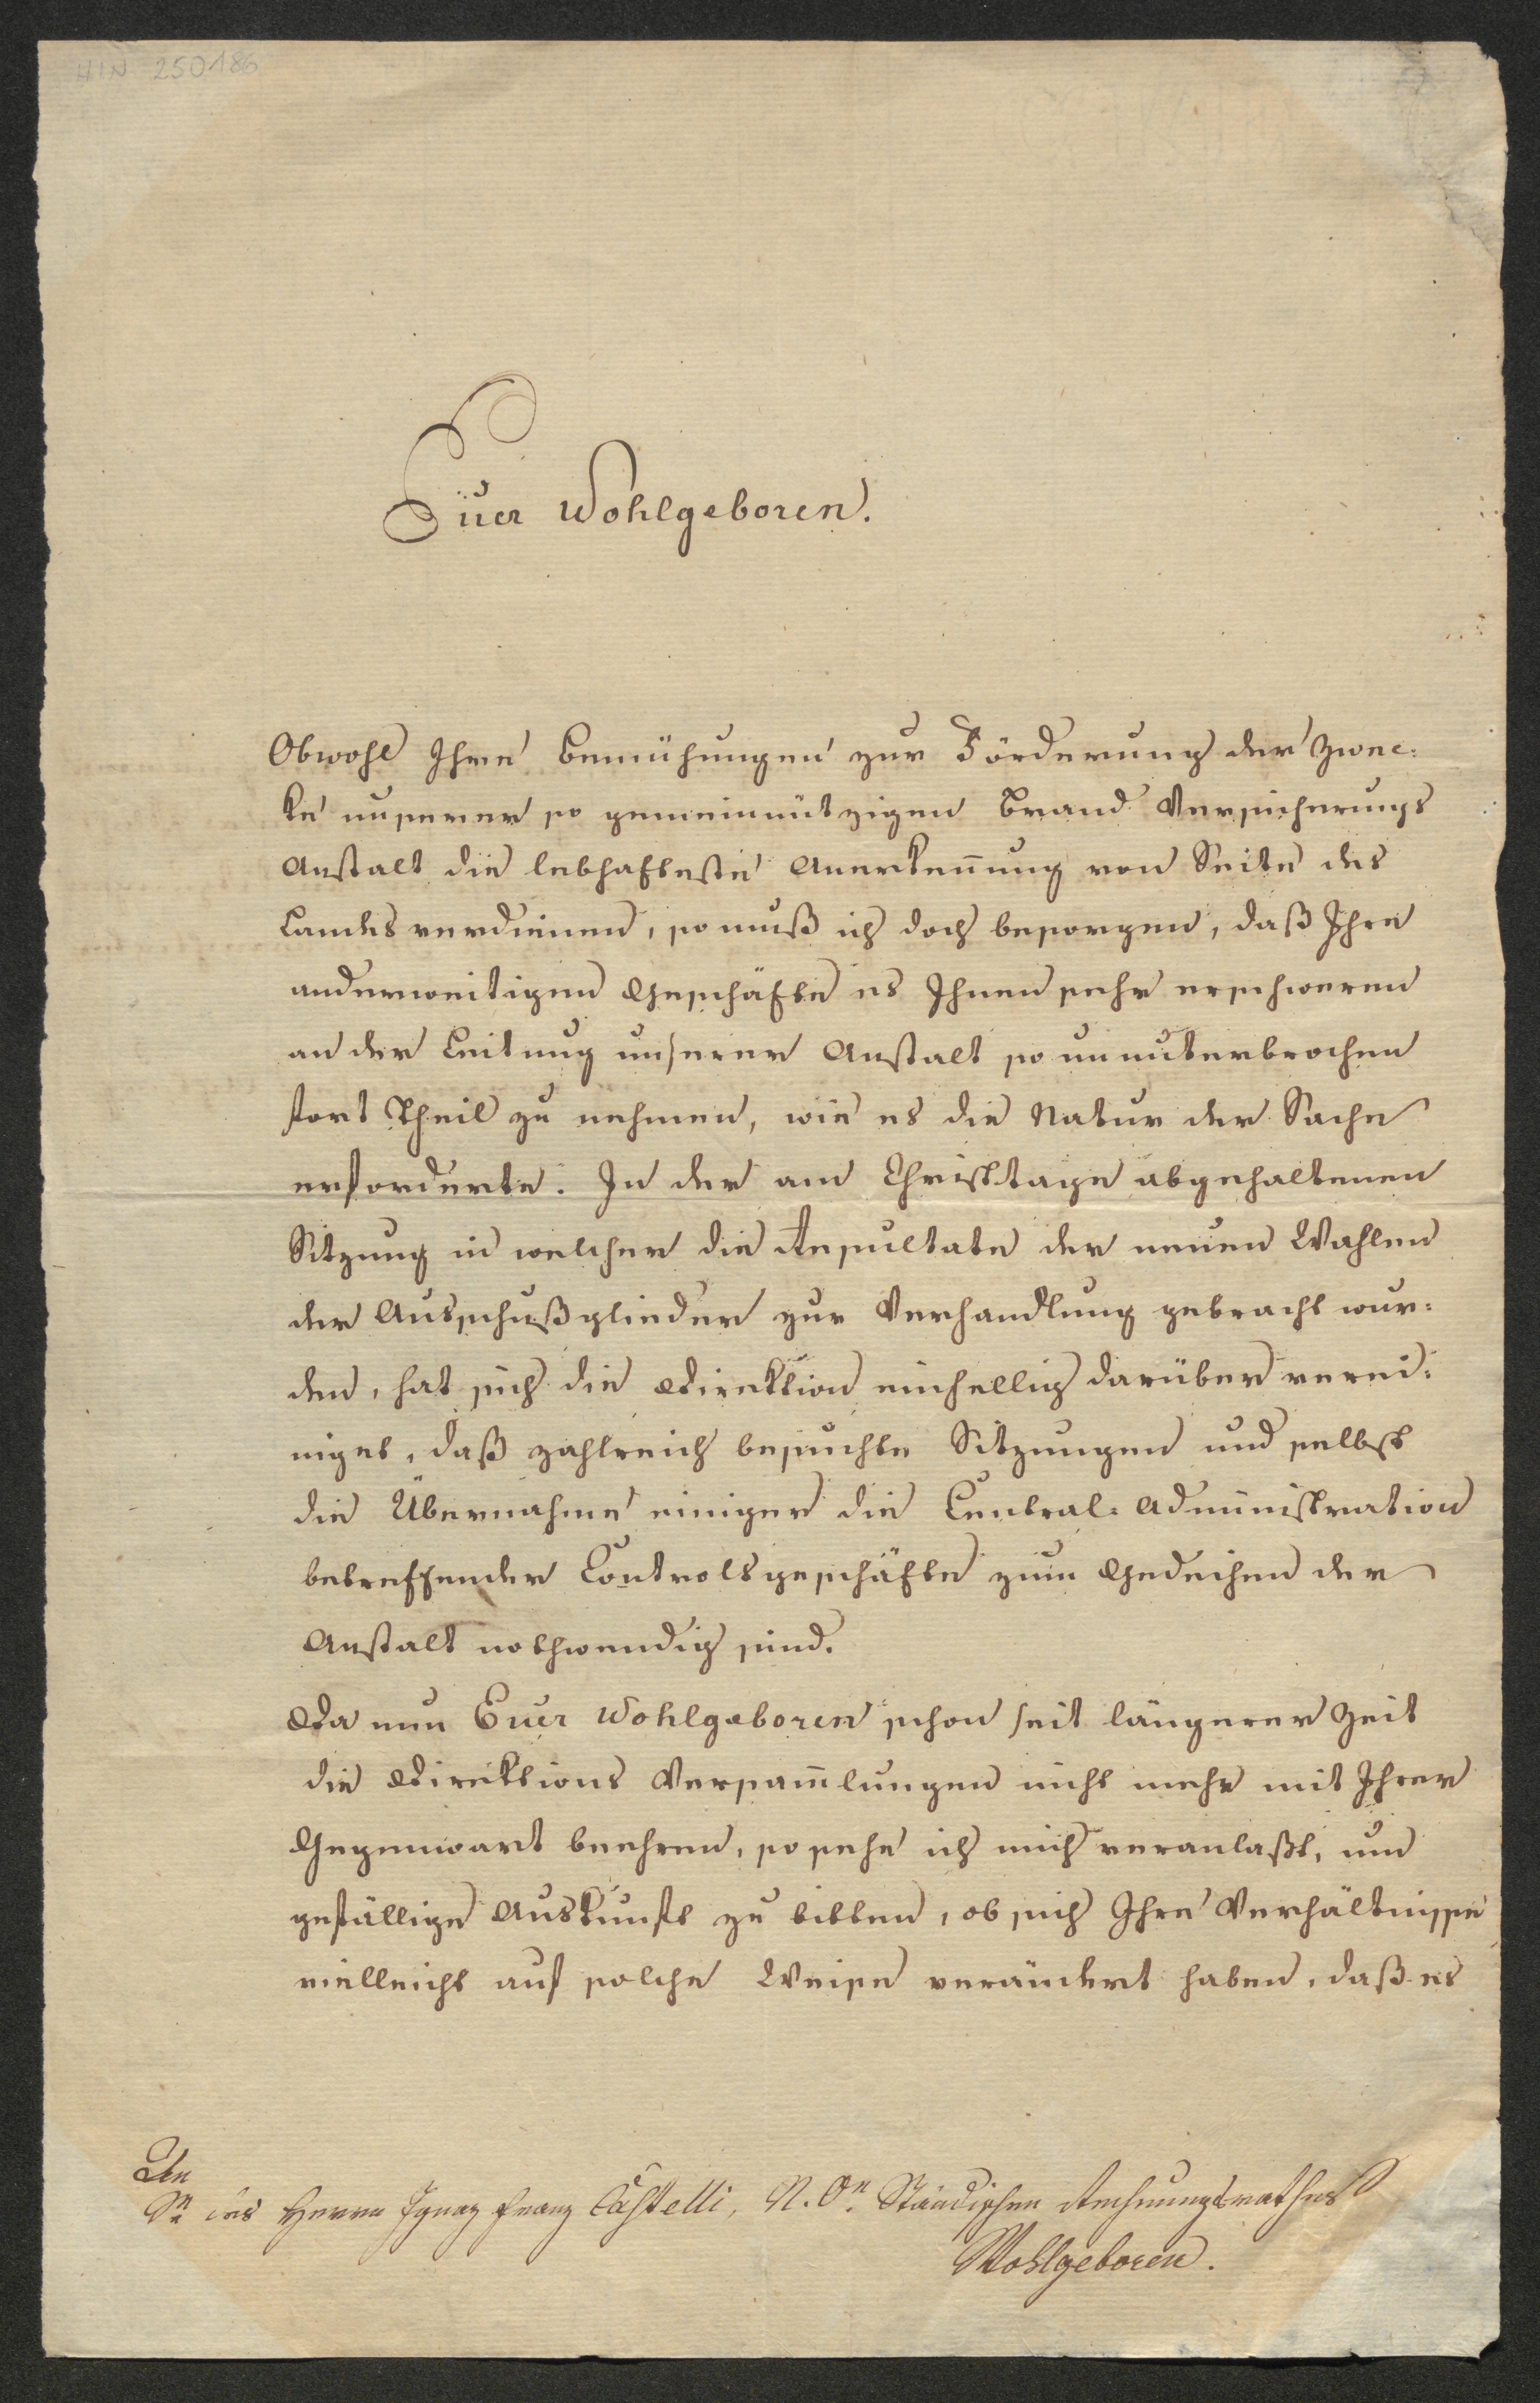 HIN 250186
Euer Wohlgeboren.
Obwohl Ihre Bemühungen zur Förderung der Zwec:
ke unserer so gemeinnützigen Brand Versicherungs
Anstalt die lebhafteste Anerkeñung von Seite des
Landes verdienen, so muß ich doch besorgen, daß Ihre
anderweitigen Geschäfte es Ihnen sehr erschweren
an der Leitung unserer Anstalt so ununterbrochen
fort Theil zu nehmen, wie es die Natur der Sache
erforderte. In der am Christtage abgehaltenen
Sitzung in welcher die Resultate der neuen Wahlen
der Ausschußglieder zur Verhandlung gebracht wur:
den, hat sich die Direktion einhellig darüber verei:
niget, daß zahlreich besuchte Sitzungen und selbst
die Übernahme einiger die Central: Administration
betreffender Controlsgeschäfte zum Gedeihen der
Anstalt nothwendig sind.
Da nun Euer Wohlgeboren schon seit längerer Zeit
die Direktions Versam̃lungen nicht mehr mit Ihrer
Gegenwart beehren, so sehe ich mich veranlaßt, um
gefällige Auskunft zu bitten, ob sich Ihre Verhältnisse
vielleicht auf solche Weise verändert haben, daß es
An
Sr des Herrn Ignaz Franz Castelli, N. Ön. Ständischen Rechnungsrathes
Wohlgeboren.